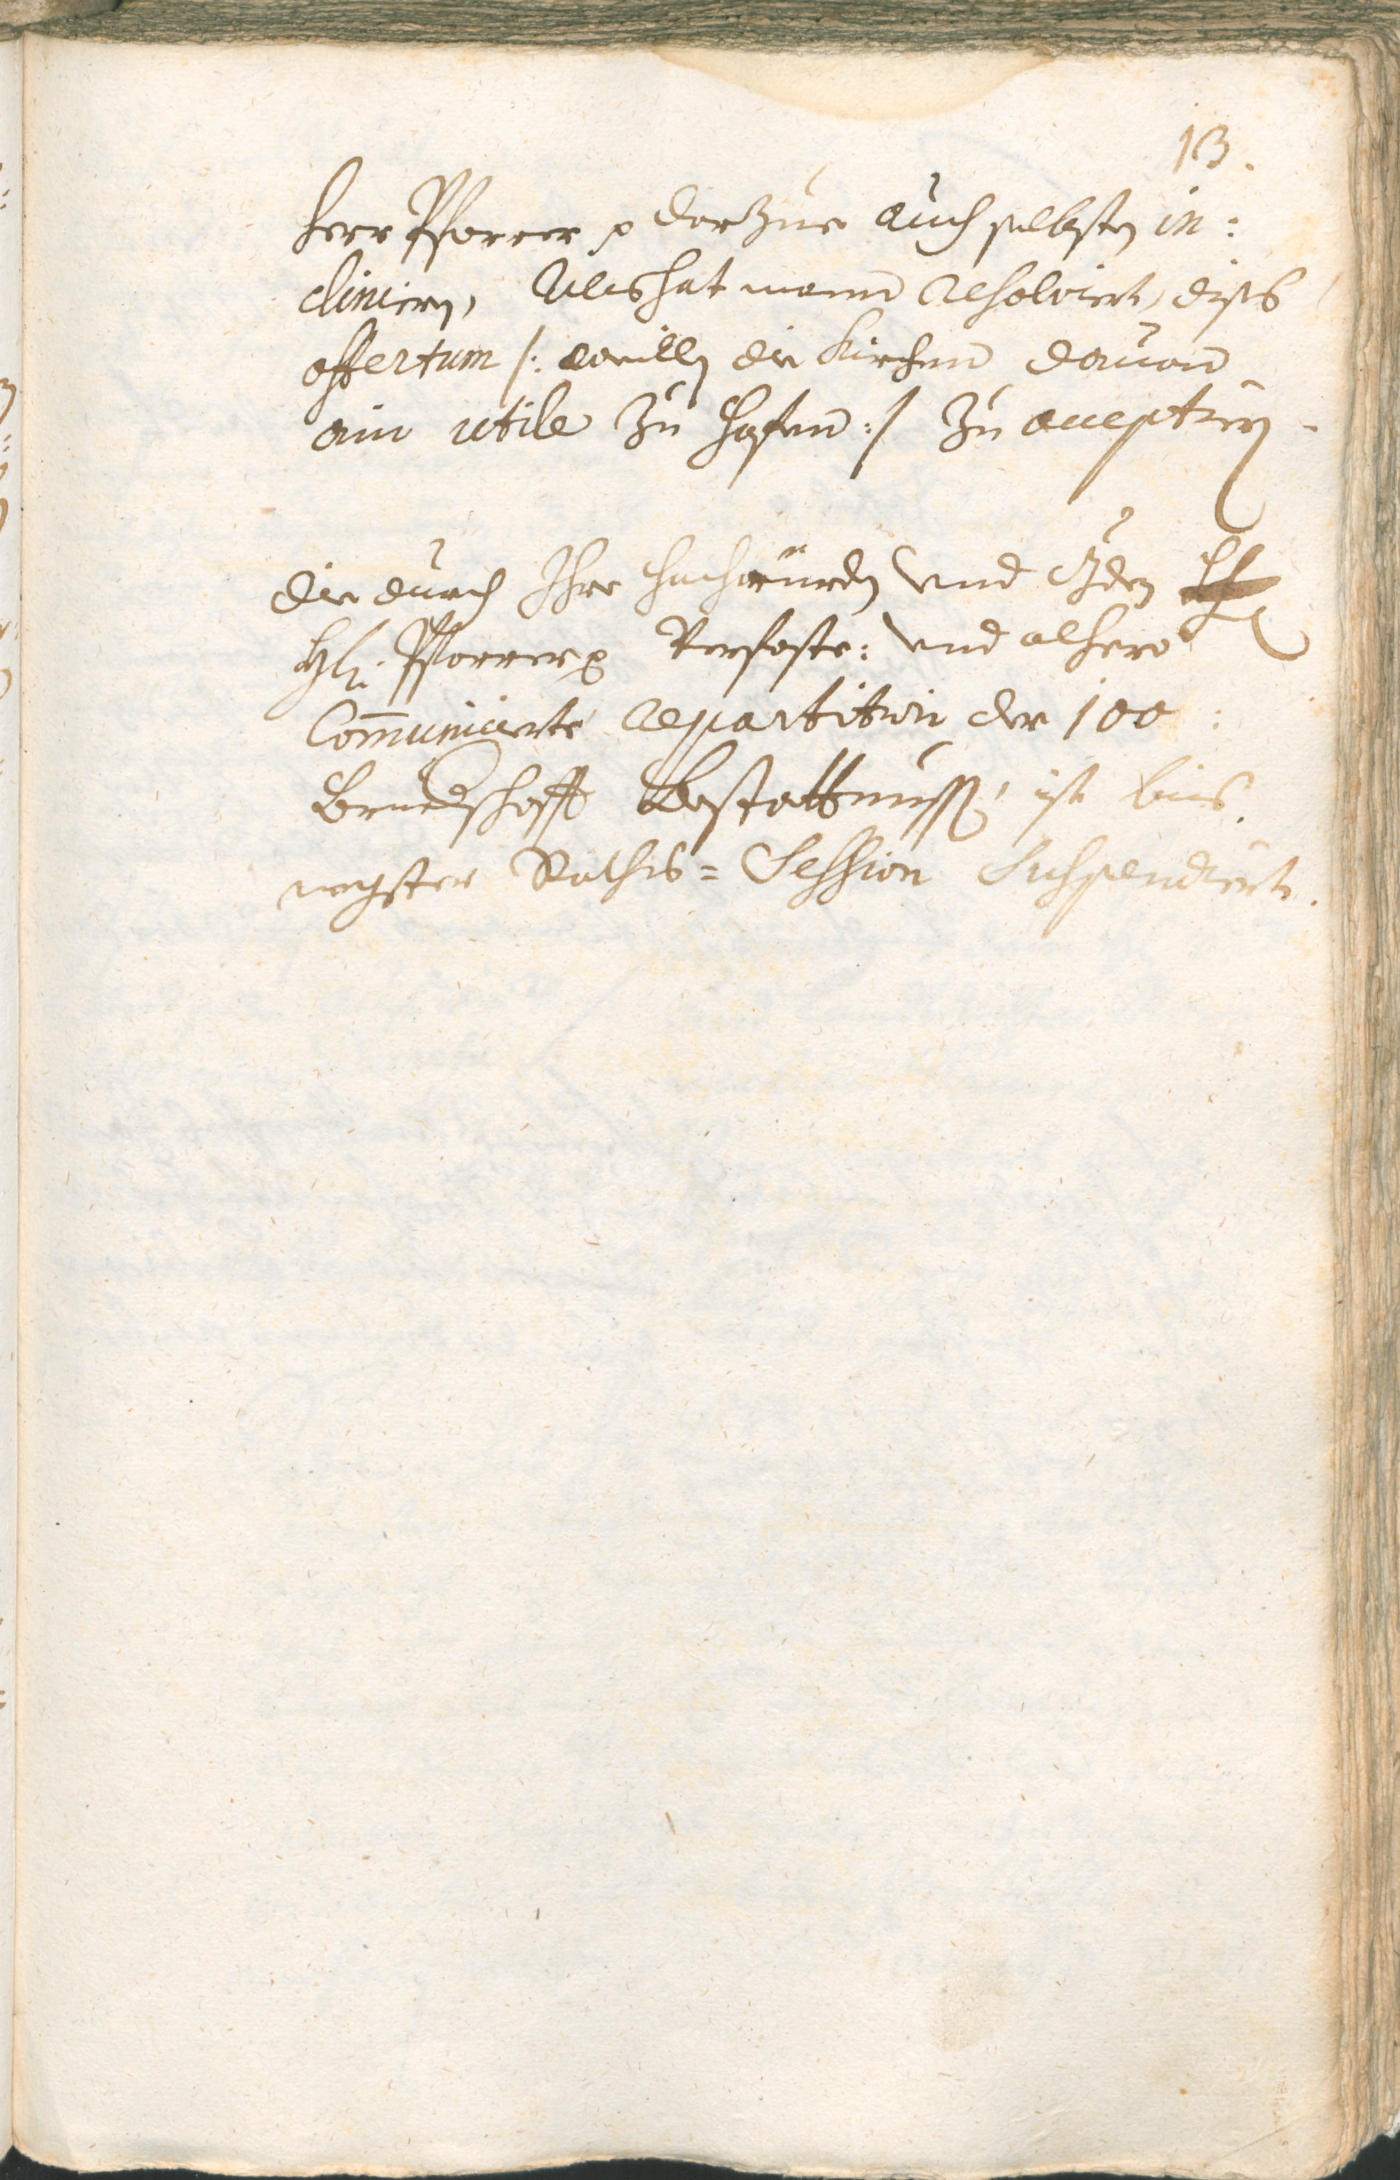 13.
Herr Pfarrer p darzue auch selbsten in:
clinieren, Alls hat mann resolviert, diss
offertum /: weillen die Kirchen davon
ain utile zu hofen :/ zu acceptiern.
Die durch Ihre Hochwürden und Gden
Hl: Pfarrer p verfaste: und alhero
Communicierte repartition der 100
Bruedschafft Bestattnuss, ist bis
negster Raths=Session Suspendiert.